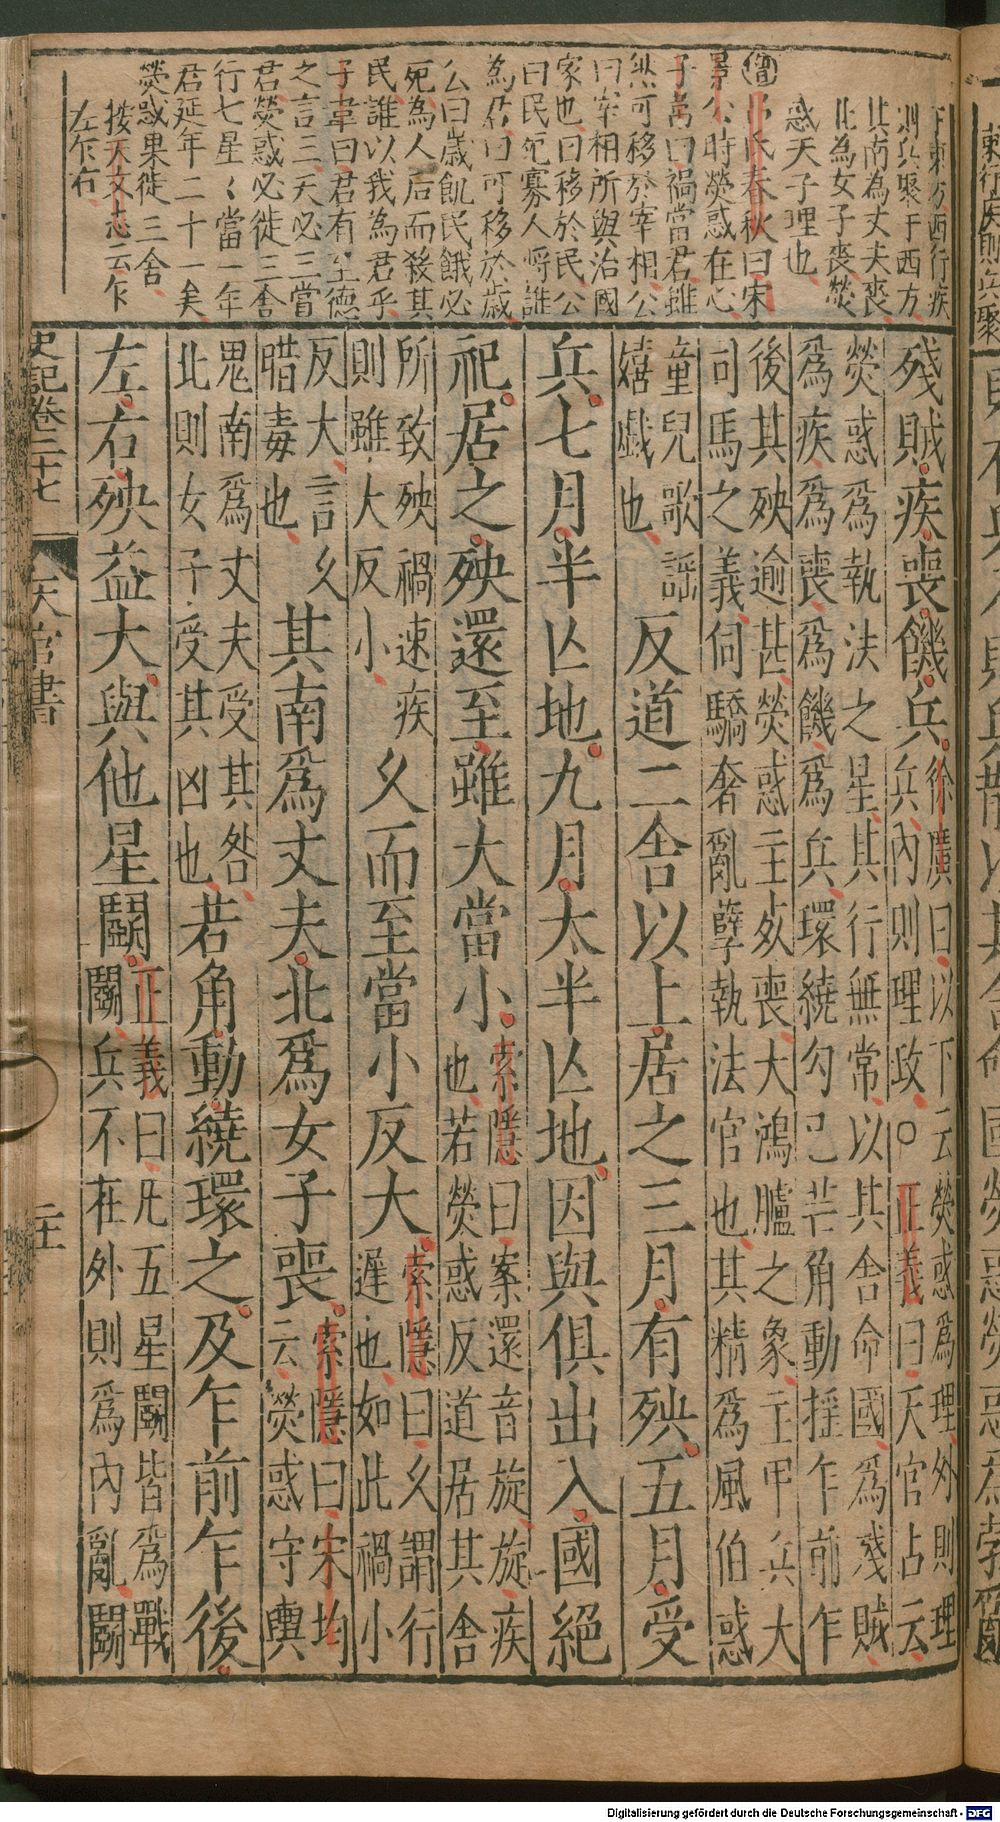 東方西行疾
則兵聚于西方
其南為丈夫喪
北為女子喪熒
惑天子理也
增呂氏春秋曰宋
景公時熒惑在心
子韋曰禍當君雖
然可移於宰相公
曰宰相所與治國
家也曰移於民公
曰民死寡人將誰
為君曰可移於歲
公曰歲飢民餓必
死為人后而殺其
民誰以我為君乎
子韋曰君有至德
之言三天必三當
君熒惑必徙三舍
行七星〻當一年
君延年二十一矣
熒惑果徙三舍
按天文志云乍
左乍右
殘賊疾喪饑兵
徐廣曰以下云熒惑爲理外則理
兵內則理政○正義曰天官占云
熒惑爲執法之星其行無常以其舍命國爲殘賊
爲疾爲喪爲饑爲兵環繞勾己芒角動搖乍前乍
後其殃逾甚熒惑主死喪大鴻臚之象主甲兵大
司馬之義伺驕奢亂孽執法官也其精爲風伯惑
童兒歌謡
嬉戲也
反道二舍以上居之三月有殃五月受
兵七月半亾地九月太半亾地因與俱出入國絕
祀居之殃還至雖大當小
索隱曰案還音旋旋疾
也若熒惑反道居其舍
所致殃禍速疾
則雖大反小
久而至當小反大
索隱曰久謂行
遲也如此禍小
反大言久
腊毒也
其南爲丈夫北爲女子喪
索隱曰宋均
云熒惑守輿
鬼南爲丈夫受其咎
北則女子受其凶也
若角動繞環之及乍前乍後
左右殃益大與他星鬭
正義曰凡五星鬭皆爲戰
鬭兵不在外則爲內亂鬭
史記卷二十七
天官書
Digitalisierung gefördert durch die Deutsche Forschungsgemeinschaft - DFG